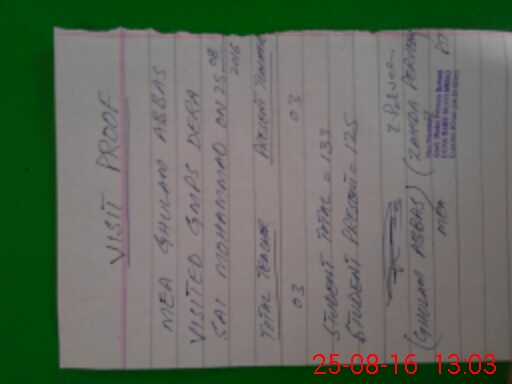 VISIT PROOF
MEA GHULAM ABBAS
VISITED GMPS DERA
SAI MOHAMMAD ON 25 08 2016
TOTAL TEACHER PRESENT TEACHER
03 03
STUDENT TOTAL = 133
STUDENT PRESENT = 125
(GHULAM ABBAS) (ZAHIDA PERVEEN)
MEA
25-08-16 13:03